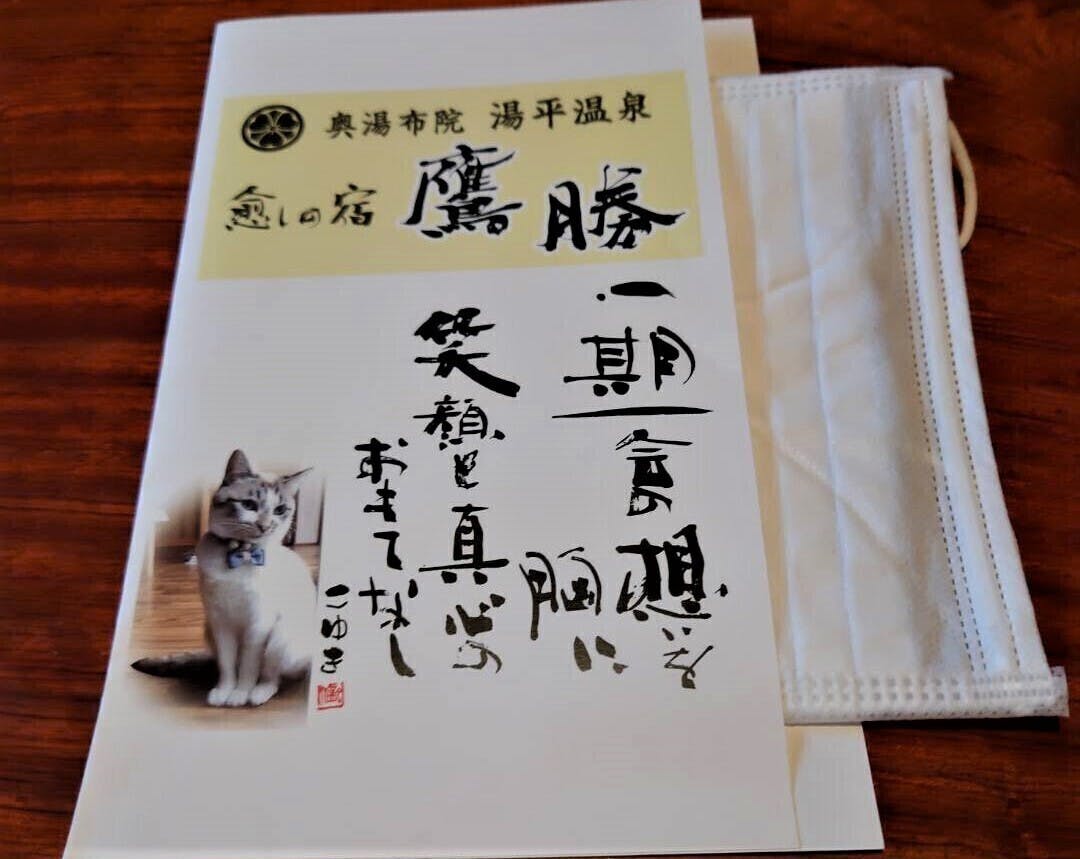 奥湯布院 湯平温泉
癒しの宿 鷹勝
一期一会の想いを
胸に
笑顔と真心の
おもてなし
こゆき